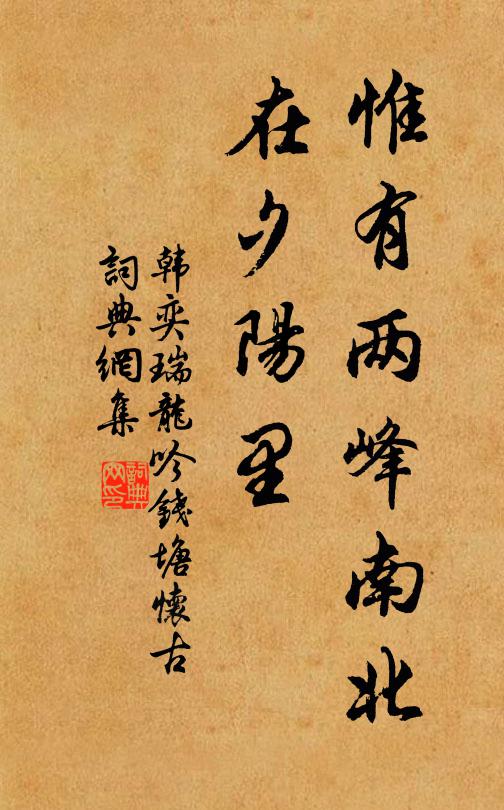 惟有两峰南北
在夕陽里
韩奕瑞龍吟錢塘懷古
詞典網集
詞典网印